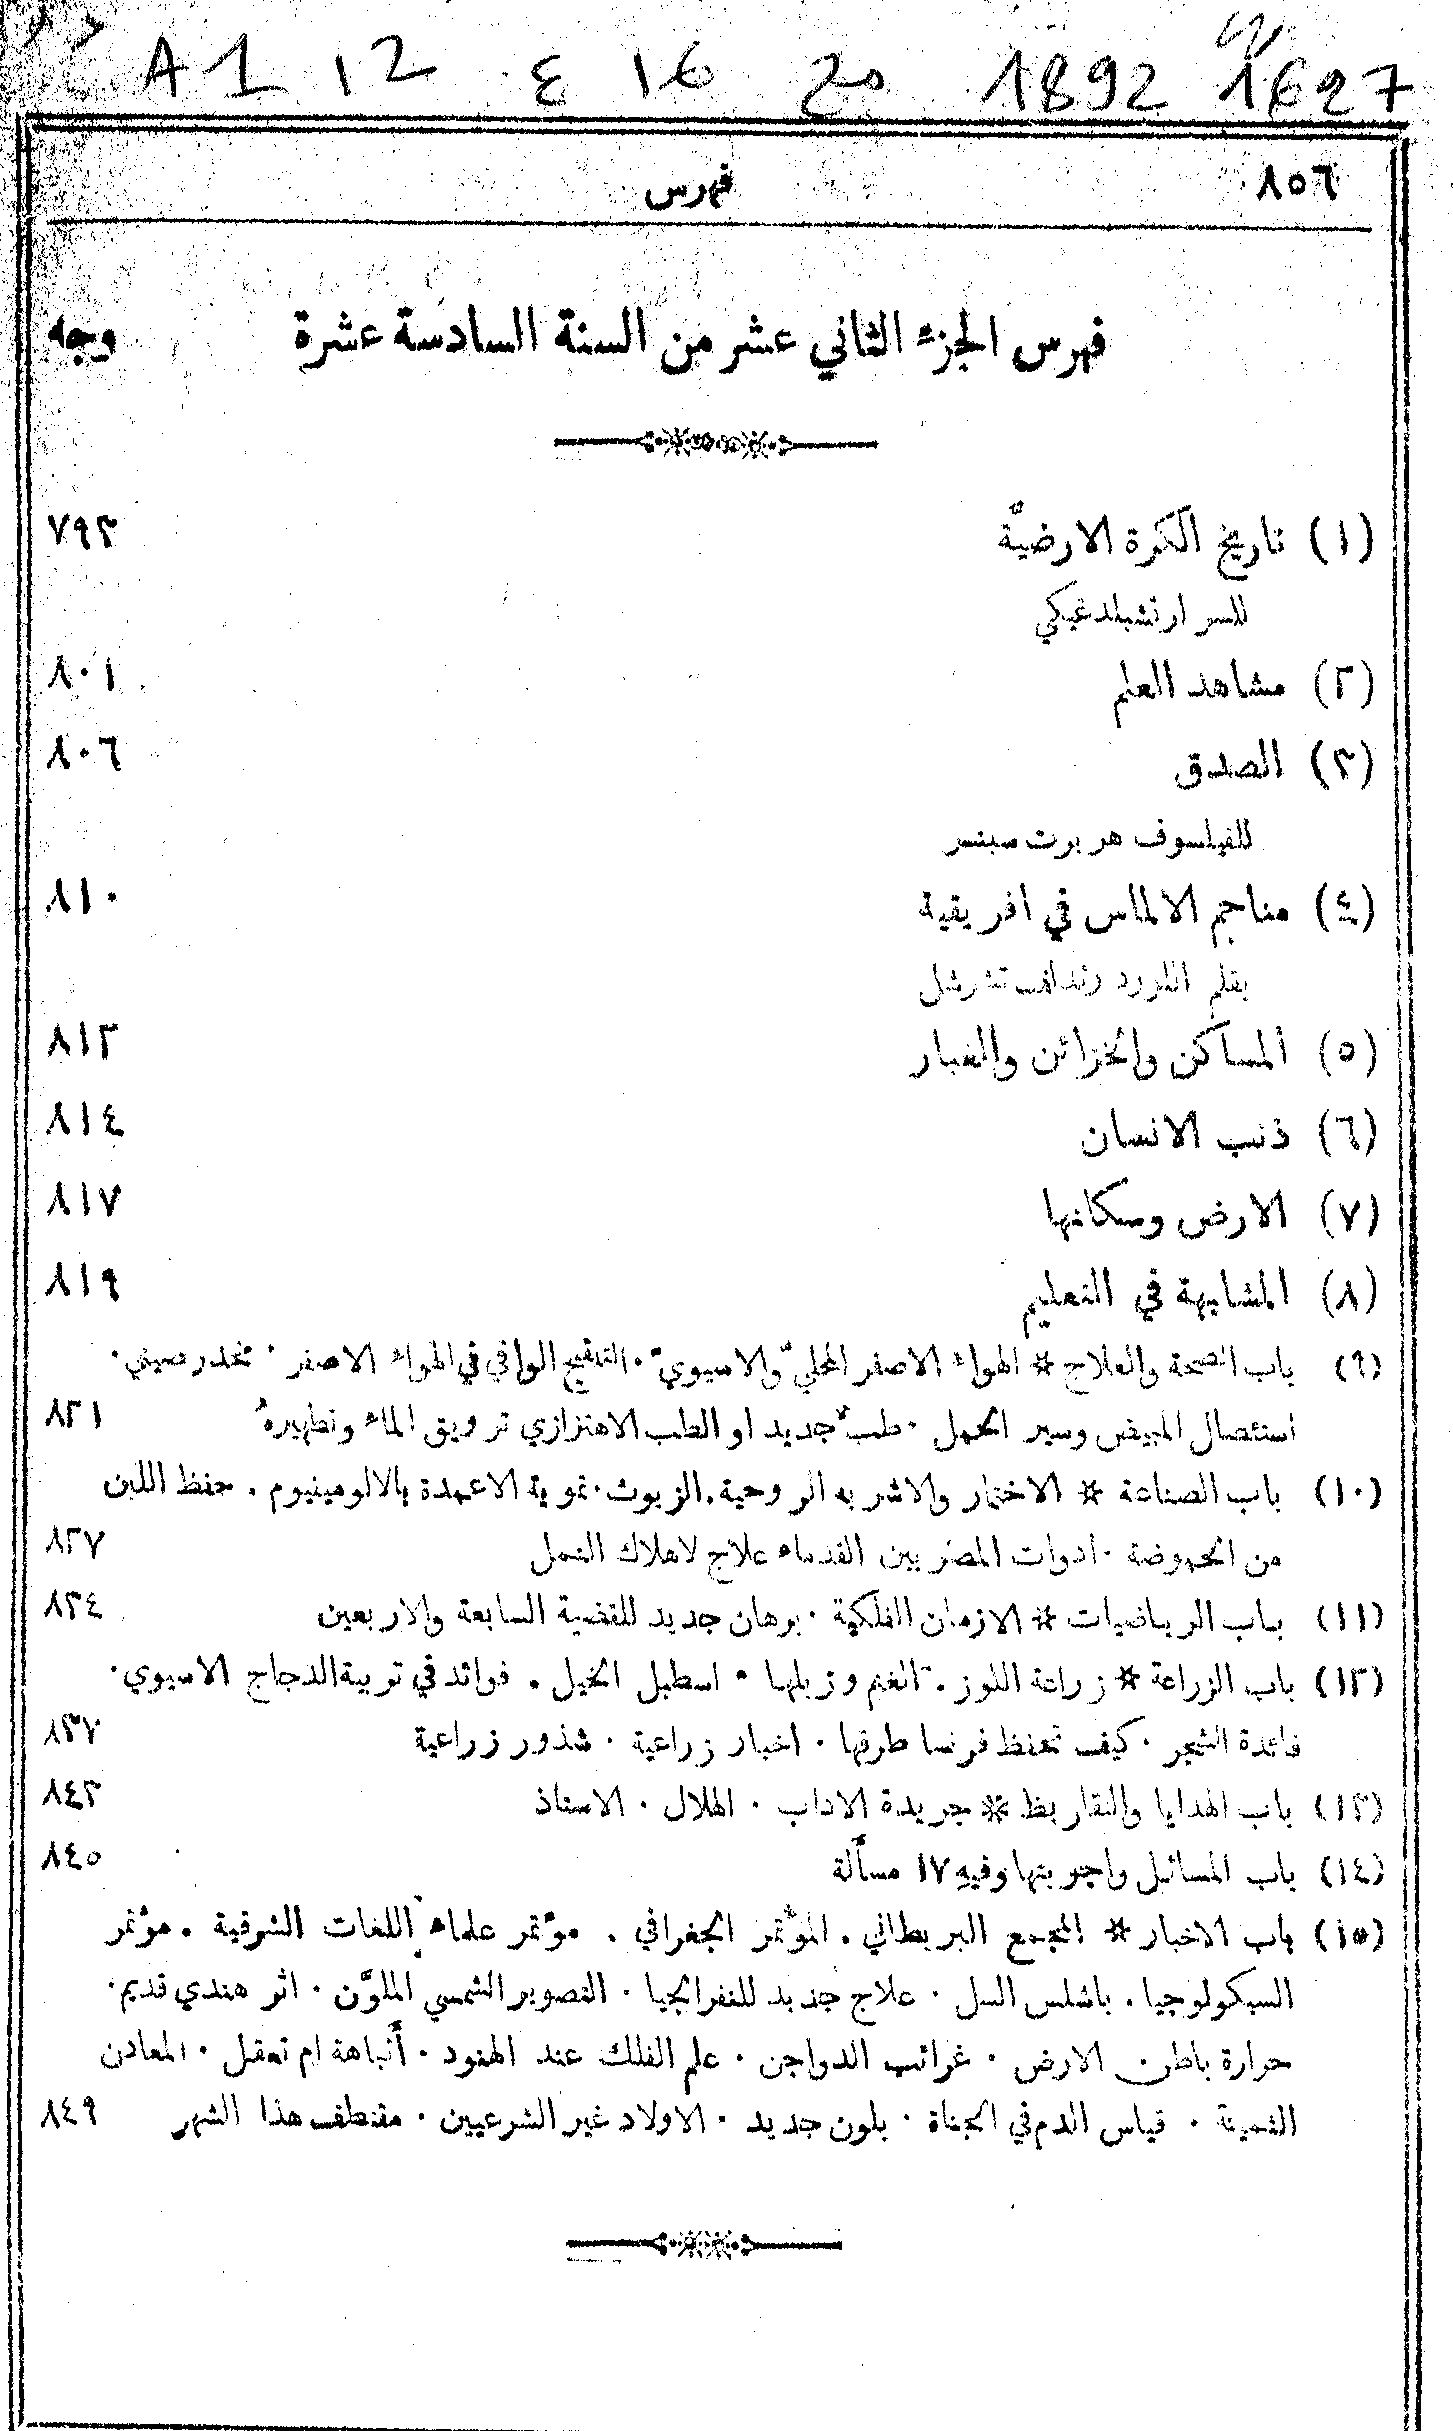 A 1 12 ع 16 مج 1892 1627
٨٥٦ فهرس
فهرس الجزء الثاني عشر من السنة السادسة عشرة وجه
(١) تاريخ الكرة الارضيَّة ٧٩٣
للسر ارتشبلد غيكي
(٢) مشاهد العلم ٨٠١
(٣) الصدق ٨٠٦
للفيلسوف هربرت سبنسر
(٤) مناجم الالماس في افريقية ٨١٠
بقلم اللورد رندلف تشرشل
(٥) المساكن والخزائن والغبار ٨١٣
(٦) ذنب الانسان ٨١٤
(٧) الارض وسكانها ٨١٧
(٨) المشابهة في التعليم ٨١٩
(٩) باب الصحة والعلاج * الهواء الاصفر المحليّ والاسيويّ . التلقيح الواقي في الهواء الاصفر . مخدر صيني .
استئصال المبيض وسير الحمل . طبٌّ جديد او الطب الاهتزازي ترويق الماء وتطهيرهُ ٨٢١
(١٠) باب الصناعة * الاختمار والاشربه الروحية . الزيوت . تموية الاعمدة بالالومينيوم . حفظ اللبن
من الحموضة . ادوات المصريين القدماء علاج لاهلاك النمل ٨٢٧
(١١) باب الرياضيات * الازمان الفلكية . برهان جديد للقضية السابعة والاربعين ٨٣٤
(١٢) باب الزراعة * زراعة اللوز . الغنم وزبلها . اسطبل الخيل . فوائد في تربية الدجاج الاسيوي .
فائدة الشجر . كيف تحفظ فرنسا طرقها . اخبار زراعية . شذور زراعية ٨٣٧
(١٣) باب الهدايا والتقاريظ * جريدة الاداب . الهلال . الاستاذ ٨٤٣
(١٤) باب المسائل واجوبتها وفيهِ ١٧ مسأَلة ٨٤٥
(١٥) باب الاخبار * المجمع البريطاني . المؤتمر الجغرافي . مؤتمر علماء اللغات الشرقية . مؤتمر
السيكولوجيا . باشلس السل . علاج جديد للنفرالجيا . التصوير الشمسي الملوَّن . اثر هندي قديم .
حرارة باطن الارض . غرائب الدواجن . علم الفلك عند الهنود . أَنباهة ام تعقل . المعادن
الثمينة . قياس الدم في الجناة . بلون جديد . الاولاد غير الشرعيين . مقتطف هذا الشهر ٨٤٩